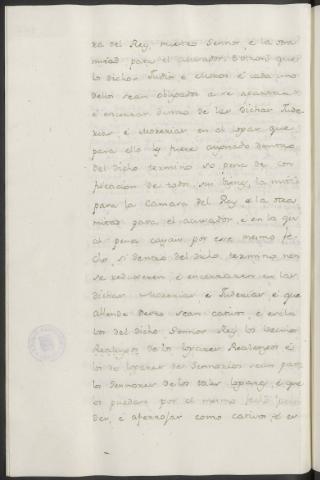 ra del Rey, nuestro Sennor é la otra
mitad para el acusador. Otrosi que
los dichos Judios é Moros é cada uno
dellos sean obligados a se apartar
é encerrar dentro de las dichas Jude-
rias é Morerias en el logar que
para ello les fuere asignado dentro
del dicho termino so pena de con-
fiscacion de todos sus bienes, la mitad
para la Camara del Rey é la otra
mitad para el acusador, é en la qu
al pena cayan por ese mesmo fe-
cho si dentro del dicho termino non
se reduxeren é encerraren en las
dichas Morerias é Juderias, é que
allende desto sean cativos é escla
vos del dicho Sennor Rey los vecinos
Realengos de los logares Realengos é
los de logares de Sennorios sean para
los Sennores de los tales logares, é que
los puedan por el mesmo fecho pren
der, é aherrojar como cativos é er